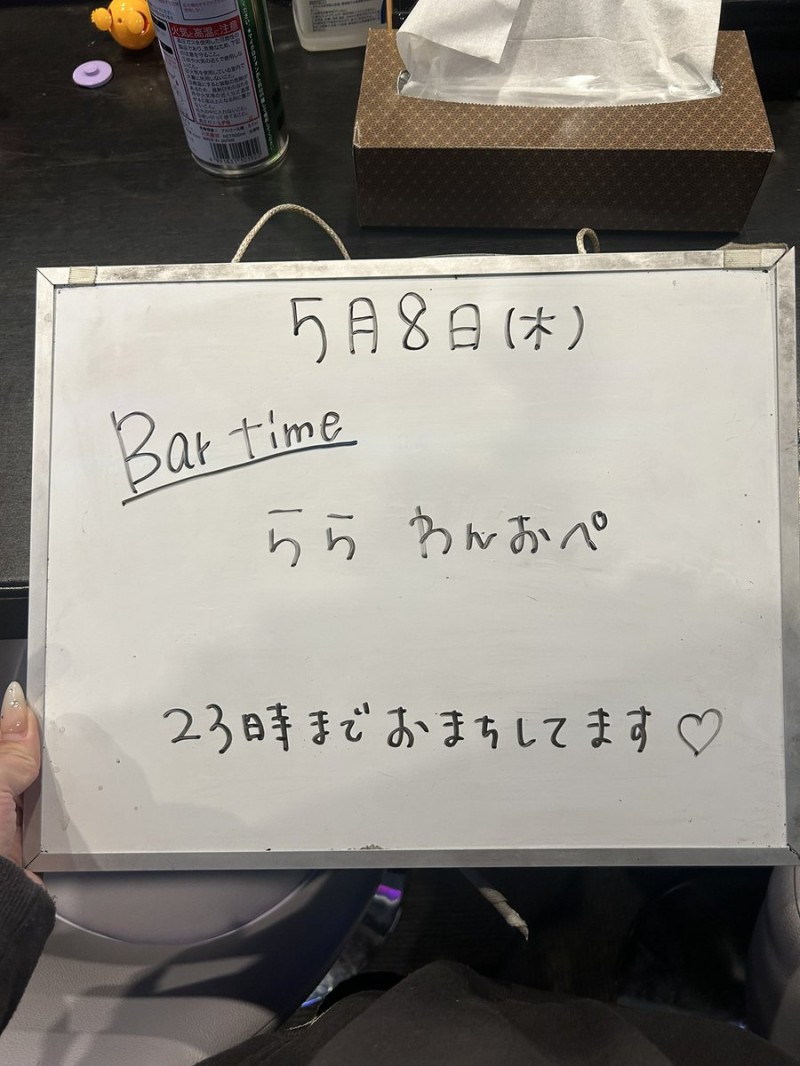 火気と高温に注意
5月8日(木)
Bar time
らら わんおぺ
23時までおまちしてます♡